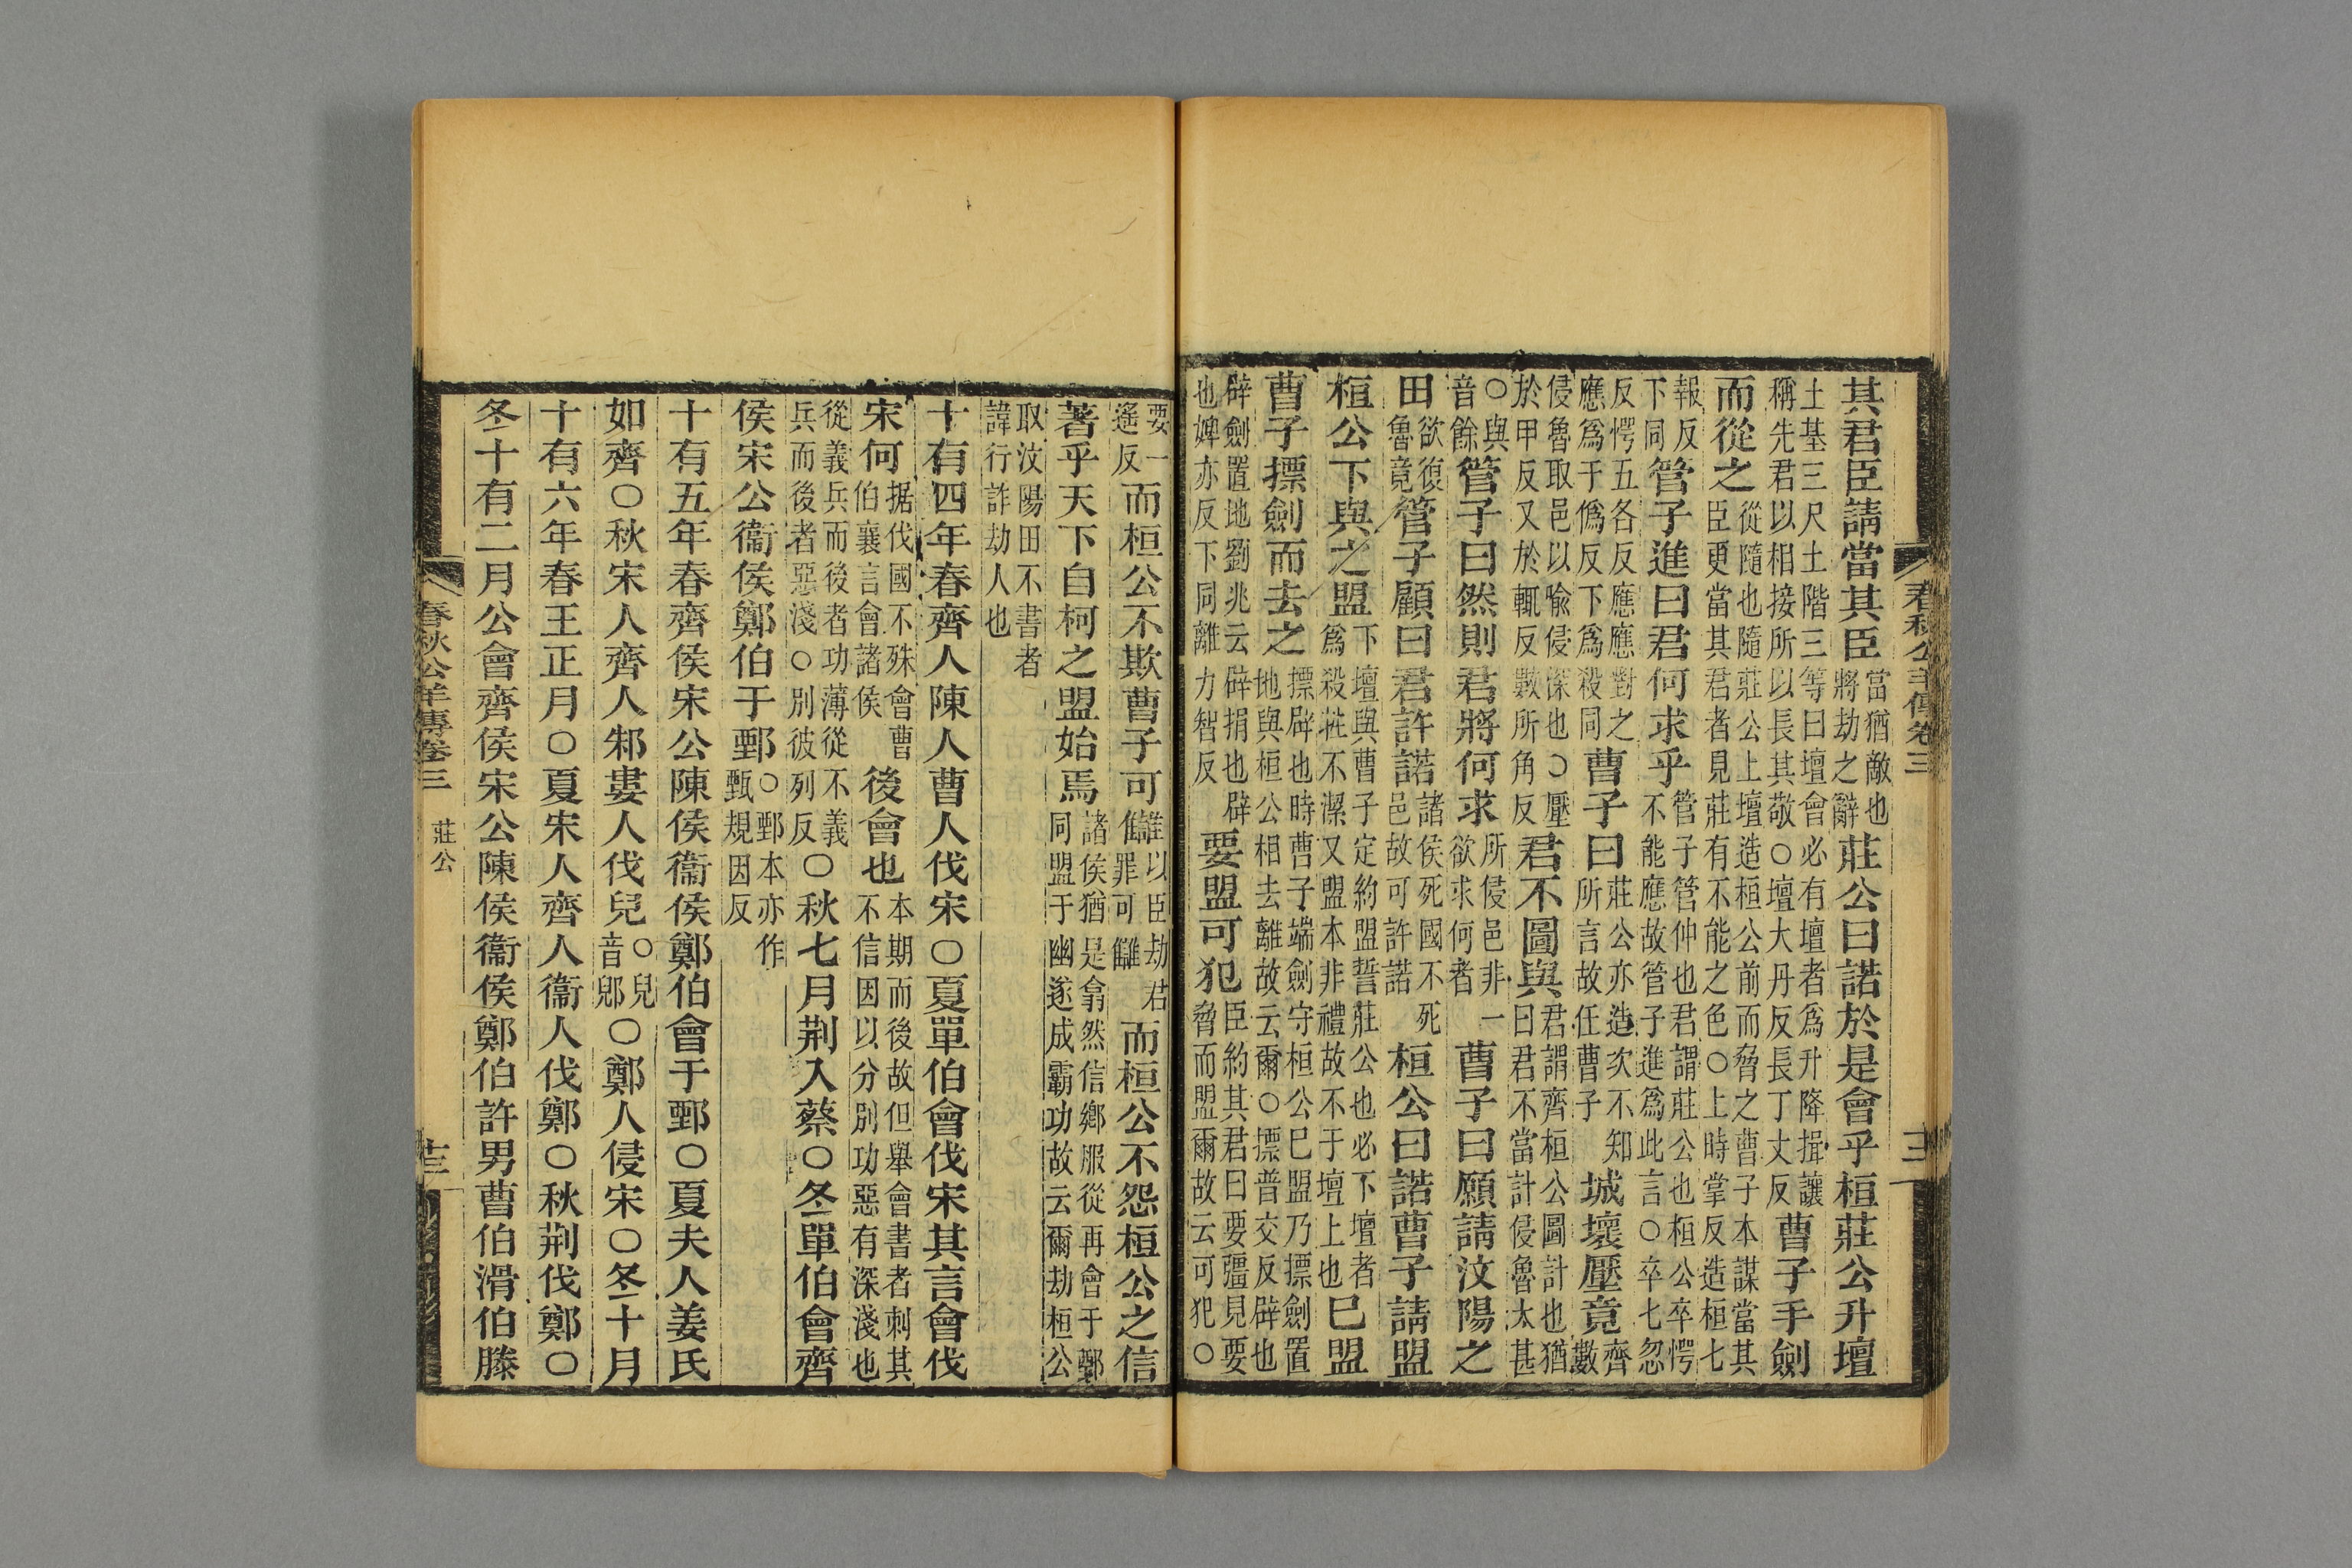 春秋公羊傳卷三
其君臣請當其臣當猶敵也將劫之辭莊公曰諾於是會乎桓莊公升壇
土基三尺土階三等曰壇會必有壇者為升降揖讓稱先君以相接所以長其敬○壇大丹反長丁丈反曹子手劍
而從之從隨也隨莊公上壇造桓公前而脅之曹子本謀當其臣更當其君者見莊有不能之色○上時掌反造桓七
報反下同管子進曰君何求乎管子管仲也君謂莊公也桓公卒愕不能應故管子進為此言○卒七忽
反愕五各反應應對之應為于僞反下為殺同曹子曰莊公亦造次不知所言故任曹子城壞壓竟齊數
侵魯取邑以喻侵深也○壓於甲反又於輒反數所角反君不圖與君謂齊桓公圖計也猶曰君不當計侵魯太甚
○與音餘管子曰然則君將何求所侵邑非一欲求何者曹子曰願請汶陽之
田欲復魯竟管子顧曰君許諾諸侯死國不死邑故可許諾桓公曰諾曹子請盟
桓公下與之盟下壇與曹子定約盟誓莊公也必下壇者為殺牲不潔又盟本非禮故不于壇上也已盟
曹子摽劍而去之摽辟也時曹子端劍守桓公已盟乃摽劍置地與桓公相去離故云爾○摽普交反辟也
辟劍置地劉兆云辟捐也辟也婢亦反下同離力智反要盟可犯臣約其君曰要彊見要脅而盟爾故云可犯○
要一遙反而桓公不欺曹子可讎以臣劫君罪可讎而桓公不怨桓公之信
著乎天下自柯之盟始焉諸侯猶是翕然信鄉服從再會于鄄同盟于幽遂成霸功故云爾劫桓公
取汶陽田不書者諱行詐劫人也
十有四年春齊人陳人曹人伐宋○夏單伯會伐宋其言會伐
宋何据伐國不殊會曹伯襄言會諸侯後會也本期而後故但舉會書者刺其不信因以分別功惡有深淺也
從義兵而後者功薄從不義兵而後者惡淺○別彼列反○秋七月荆入蔡○冬單伯會齊
侯宋公衞侯鄭伯于鄄○鄄本亦作甄規因反
十有五年春齊侯宋公陳侯衞侯鄭伯會于鄄○夏夫人姜氏
如齊○秋宋人齊人邾婁人伐兒○兒音郳○鄭人侵宋○冬十月
十有六年春王正月○夏宋人齊人衞人伐鄭○秋荆伐鄭○
冬十有二月公會齊侯宋公陳侯衞侯鄭伯許男曹伯滑伯滕
春秋公羊傳卷三
莊公